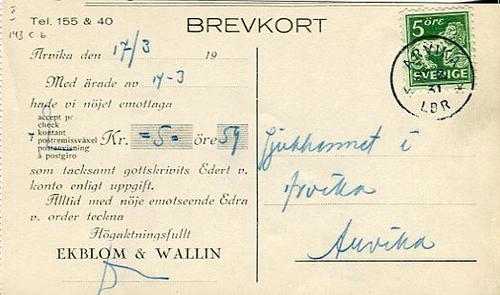 193 c 6
Tel. 155 & 40
BREVKORT
Arvika den 17/3 19
Med ärade av 14-3
hade vi nöjet emottaga
accept pr
check
kontant
postremissväxel
postanvisning
à postgiro
Kr. =5= öre 59
som tacksamt gottskrivits Edert v.
konto enligt uppgift.
Alltid med nöje emotseende Edra
v. order teckna
Högaktningsfullt
EKBLOM & WALLIN
5 öre
SVERIGE
ARVIKA
31
LBR
Sjukhemmet i
Arvika
Arvika